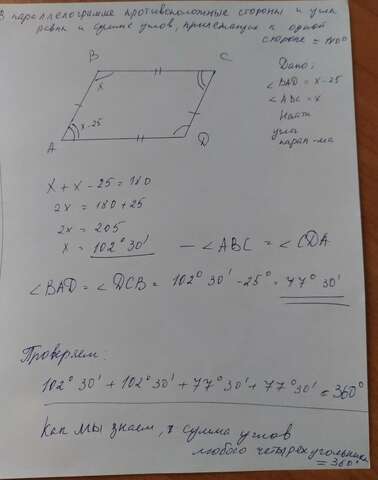 В параллелограмме противоположные стороны и углы
равны и сумма углов, прилежащих к одной
стороне = 180°
B
C
Дано:
∠BAD = x-25
x
∠ABC = x
Найти
углы
парал-ма
x-25
A
D
x + x - 25 = 180
2x = 180 + 25
2x = 205
x = 102° 30' — ∠ABC = ∠CDA
∠BAD = ∠DCB = 102° 30' - 25° = 77° 30'
Проверяем:
102° 30' + 102° 30' + 77° 30' + 77° 30' = 360°
Как мы знаем, сумма углов
любого четырёхугольника
= 360°